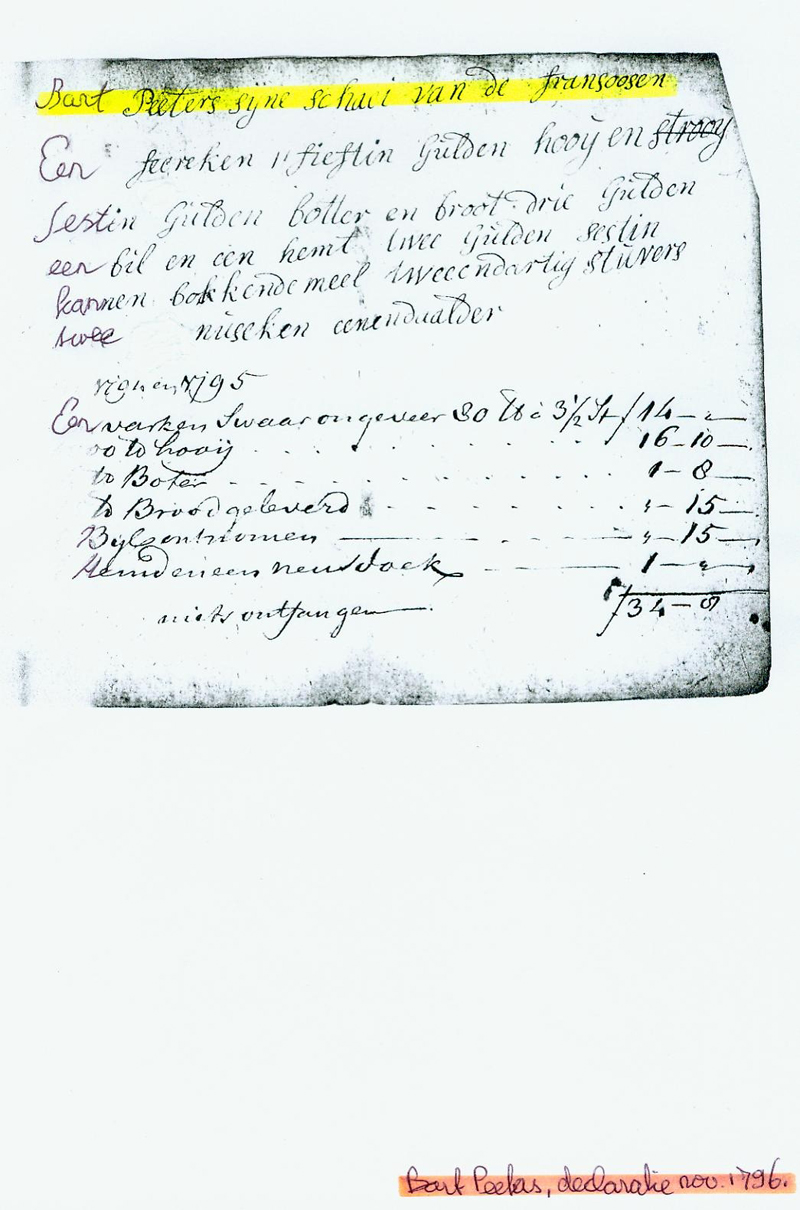 Bart Peeters syne schaei van de fransoosen
Een feereken fieftin Gulden hooÿ en strooÿ
Sestin Gulden botter en broot drie Gulden
een bil en een hemt twee Gulden sestin
kannen bokkende meel tweeendartig stuvers
twee nuseken eenendaalder
1795
Een varken Swaar ongeveer 80 lb à 3½ St f 14 - "
lb hooij 16 - 10
lb Boter 1 - 8
lb Brood geleverd " - 15
Byl " - 15
Hemd en een neusdoek 1 - "
f 34 - 8
niets ontfangen
Bart Peeters, declaratie nov. 1796.